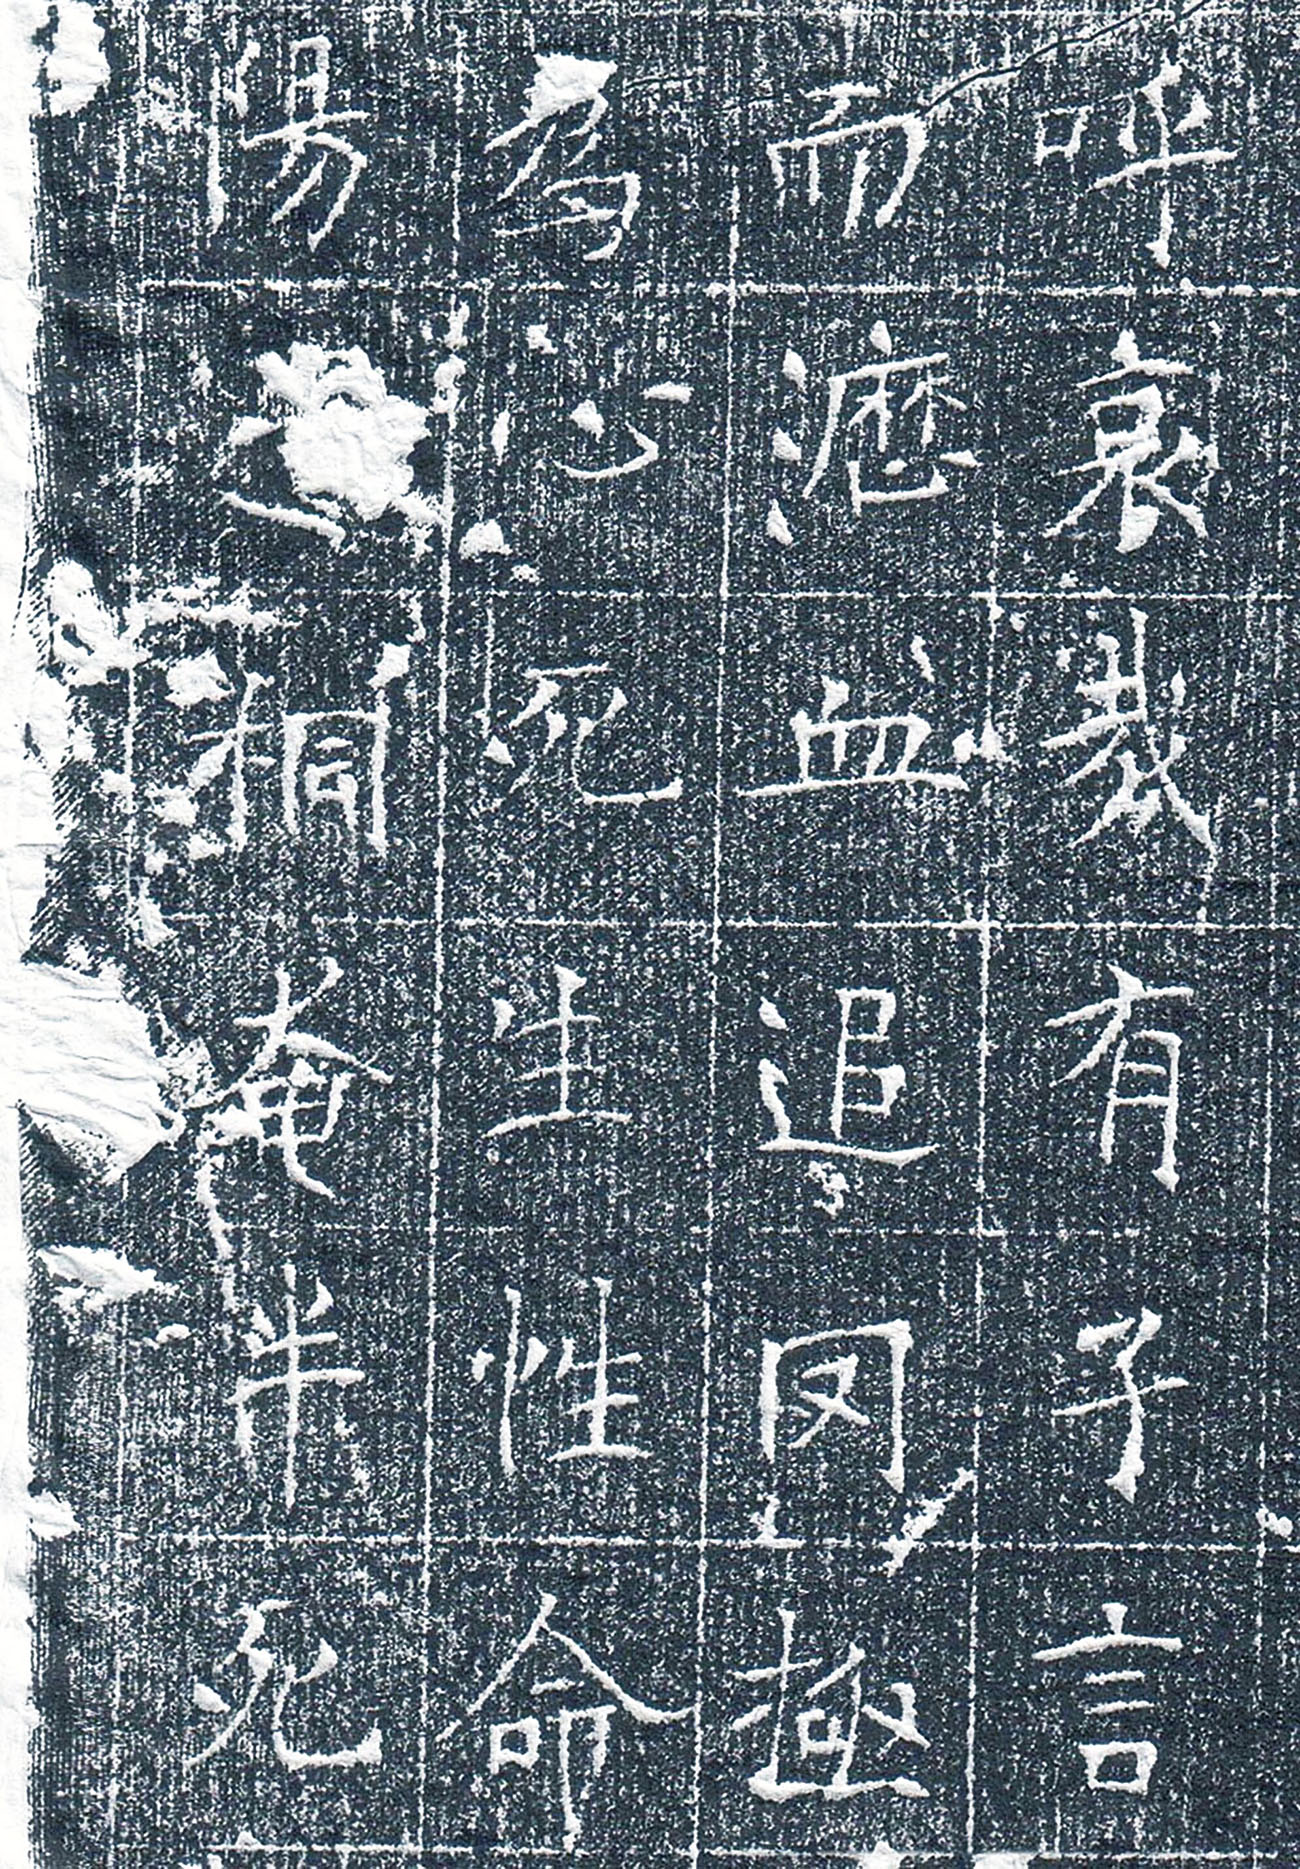 呼哀哉有子言
而瀝血追罔極
為心死生性命
陽桐奄半死